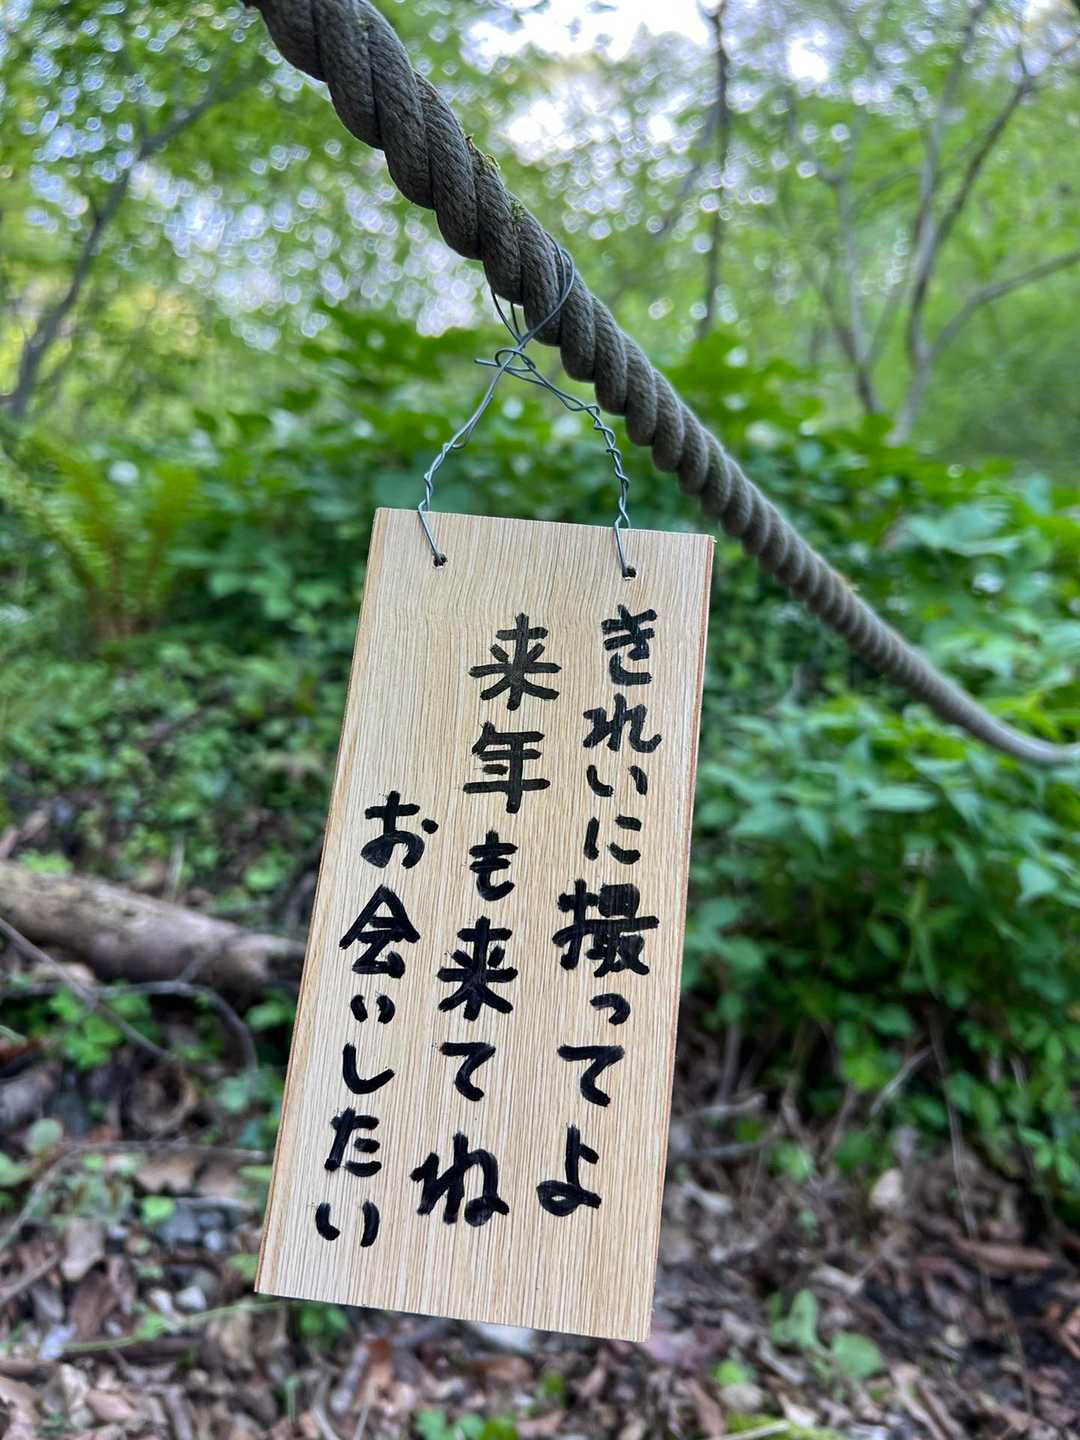 きれいに撮ってよ
来年も来てね
お会いしたい